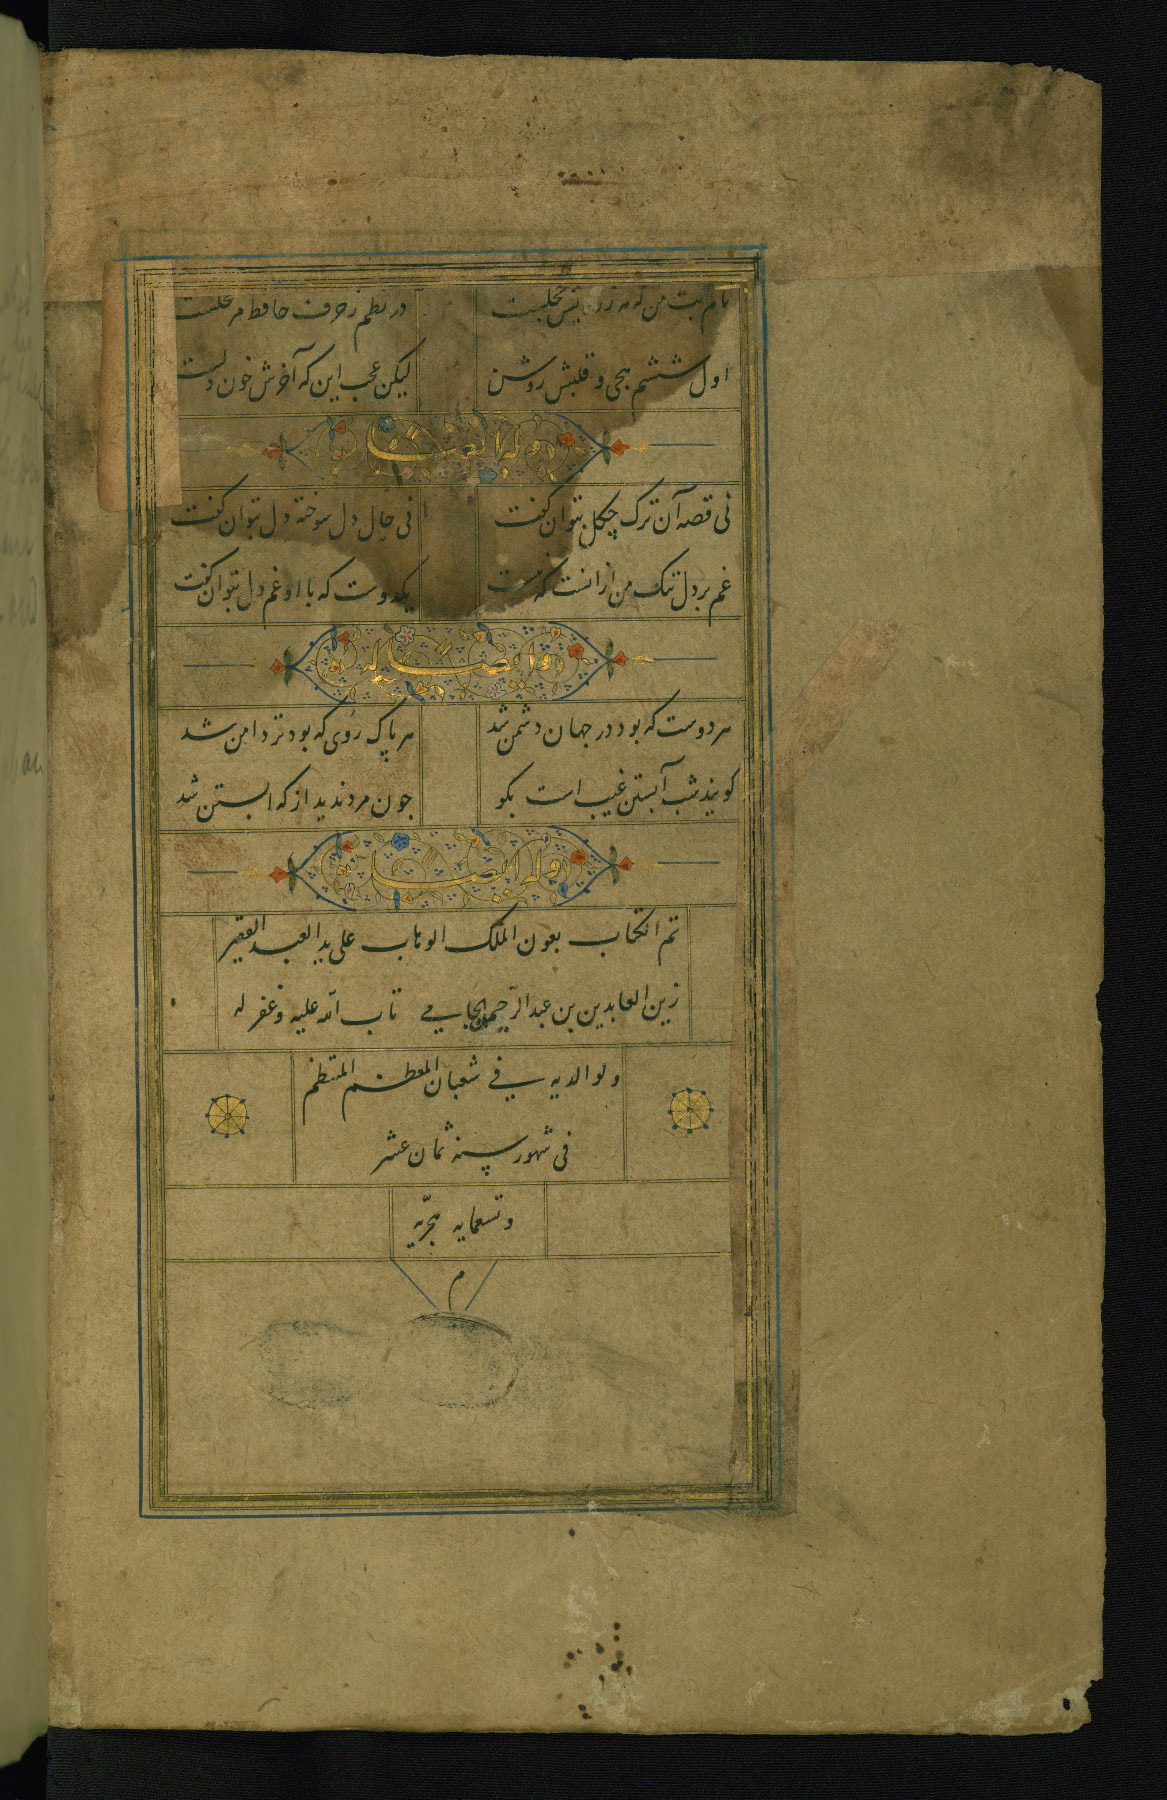 نام بت من که مه ز رویش خجلست
در نظم ز حرف حافظ مر
اول ششم هجی و قلبش روشن
لیکن عجب این که آخرش خون دلست
نی قصه آن ترک چکل بتوان کفت
نی حال دل سوخته دل بتوان کفت
غم بر دل تنک من از آنست که نیست
یکدوست که با او غم دل بتوان کفت
وله ایضا له
هر دوست که بود در جهان دشمن شد
هر پاک روی که بود تردامن شد
کویند شب آبستن غیب است بکو
جون مرد ندید از که ابستن شد
وله ایضا
تم الکتاب بعون الملک الوهاب علی ید العبد الفقیر
زین العابدین بن عبدالرحمن الجامی تاب الله علیه و غفر له
ولوالدیه فی شعبان المعظم المنتظم
فی شهور سنه ثمان عشر
و تسعمایه هجریه
م